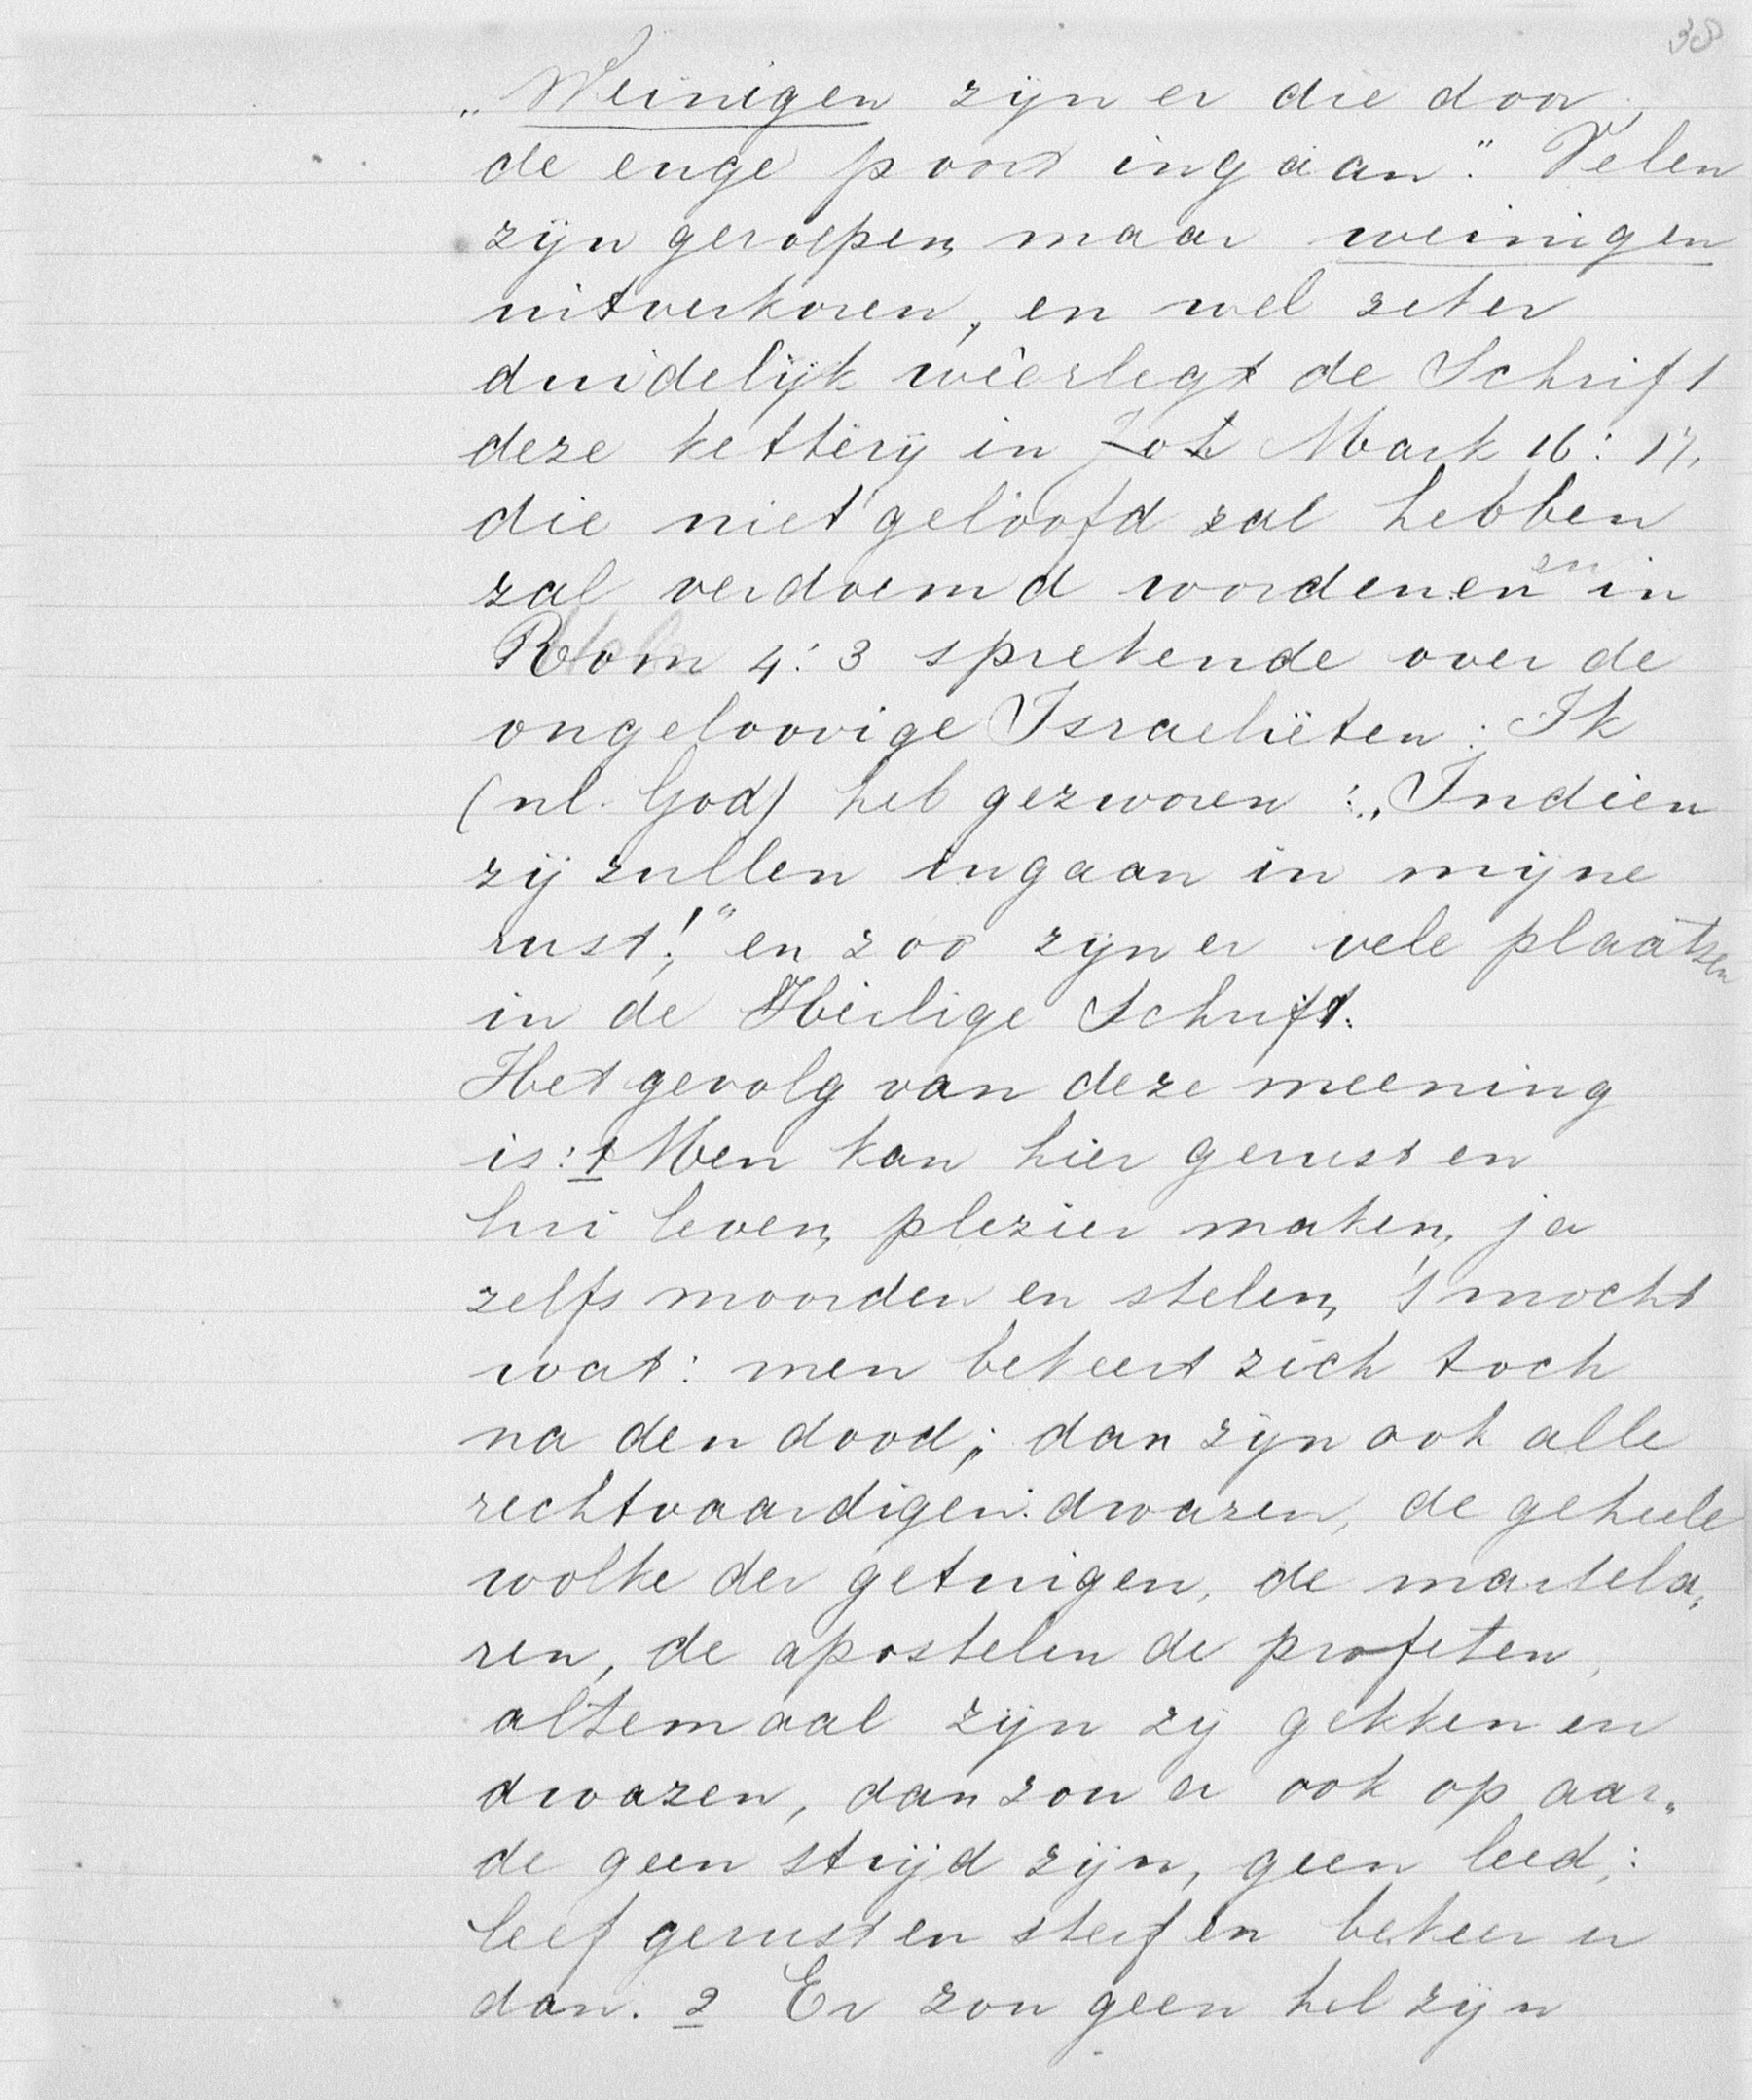 38
„Weinigen zijn er die door
de enge poort ingaan." Velen
zijn geroepen, maar weinigen
uitverkoren, en wel zeker
duidelijk wêerlegt de Schrift
deze ketterij in Mark 16: 17,
die niet geloofd zal hebben
zal verdoemd worden en in
Rom 4: 3 sprekende over de
ongeloovige Israeliëten: Ik
(nl. God) heb gezworen: „Indien
zij zullen ingaan in mijne
rust!" en zoo zijn er vele plaatsen
in de Heilige Schrift.
Het gevolg van deze meening
is: 1 Men kan hier gerust en
lui leven, plezier maken, ja
zelfs moorden en stelen, 't mocht
wat: men bekeert zich toch
na den dood; dan zijn ook alle
rechtvaardigen dwazen, de geheele
wolke der getuigen, de martela„
ren, de apostelen de profeten,
altemaal zijn zij gekken en
dwazen, dan zou er ook op aar„
de geen strijd zijn, geen leed;
leef gerust en sterf en bekeer u
dan. 2 Er zou geen hel zijn